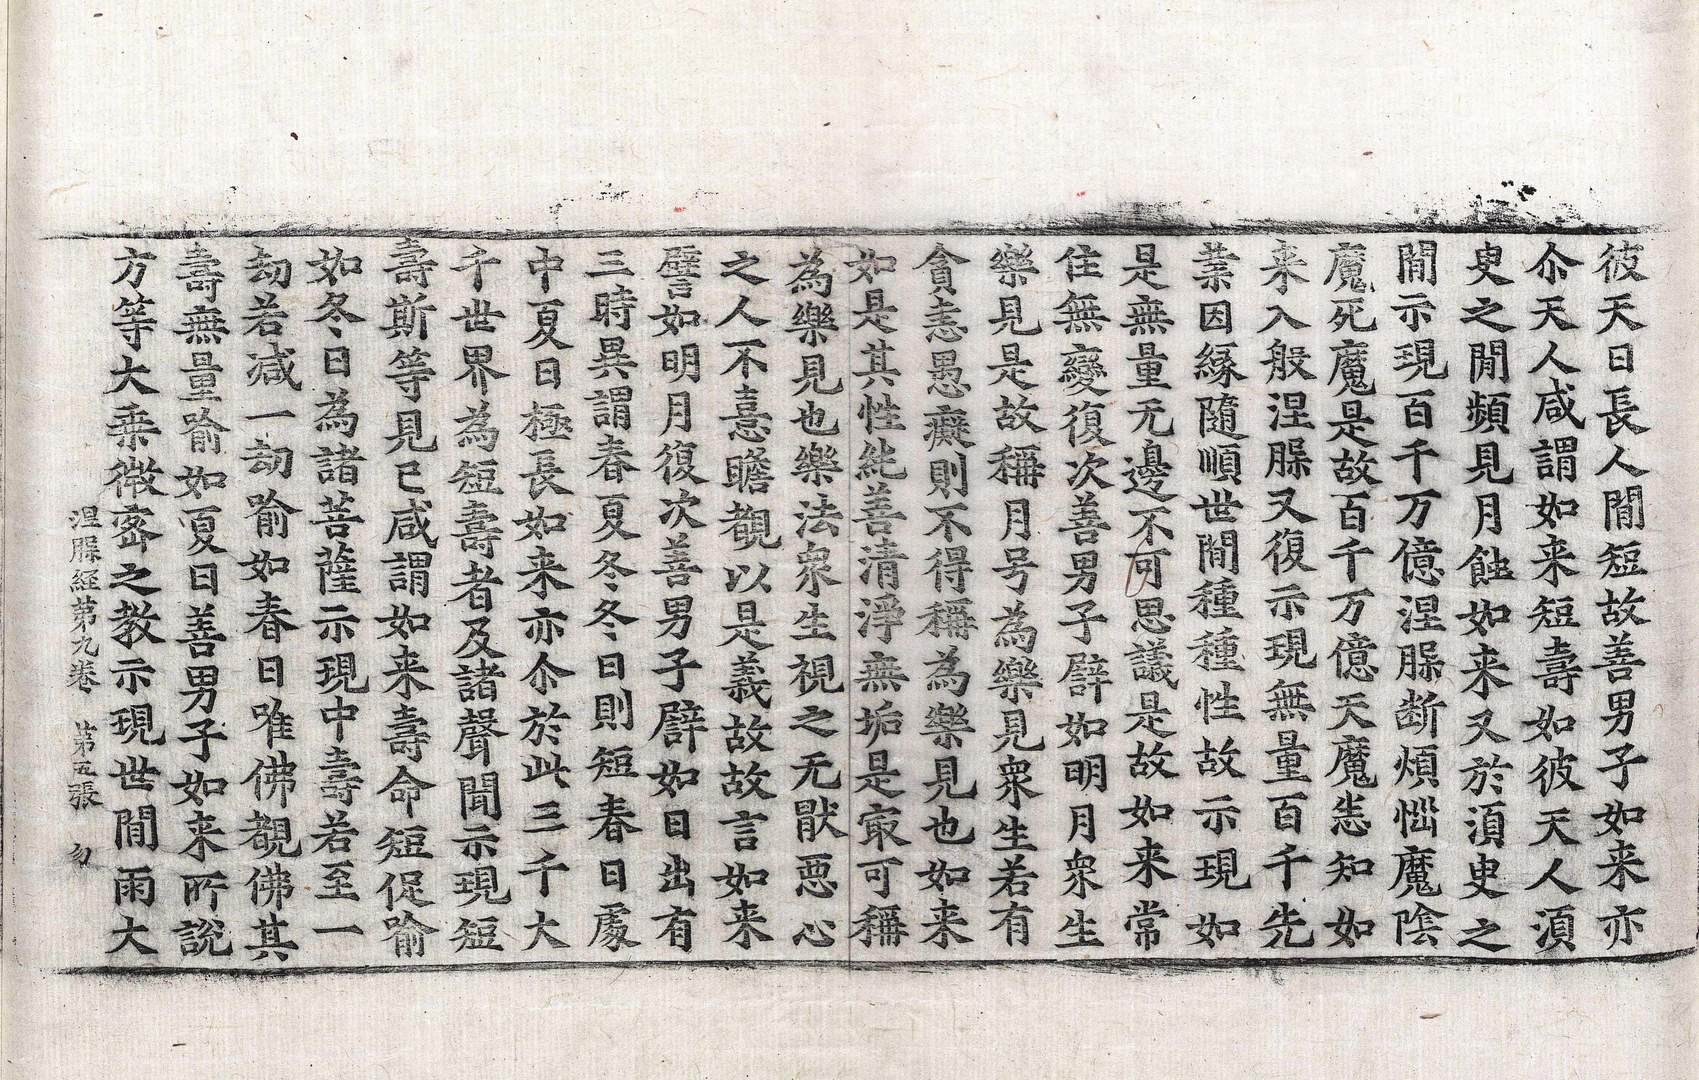 彼天日長人閒短故善男子如来亦
尒天人咸謂如来短壽如彼天人湏
臾之閒頻見月蝕如来又於湏臾之
閒示現百千万億涅脲断煩惱魔陰
魔死魔是故百千万億天魔悉知如
来入般涅脲又復示現無量百千先
業因緣隨順世閒種種性故示現如
是無量无邊不可思議是故如来常
住無變復次善男子譬如明月衆生
樂見是故稱月号為樂見衆生若有
貪恚愚癡則不得稱為樂見也如来
如是其性純善清淨無垢是冣可稱
為樂見也樂法衆生視之无猒惡心
之人不憙瞻覩以是義故故言如来
譬如明月復次善男子譬如日出有
三時異謂春夏冬冬日則短春日處
中夏日極長如来亦尒於此三千大
千世界為短壽者及諸聲聞示現短
壽斯等見已咸謂如来壽命短促喻
如冬日為諸菩薩示現中壽若至一
劫若减一劫喻如春日唯佛覩佛其
壽無量喻如夏日善男子如来所說
方等大乗微密之教示現世閒雨大
涅脲経第九卷 第五張 勿